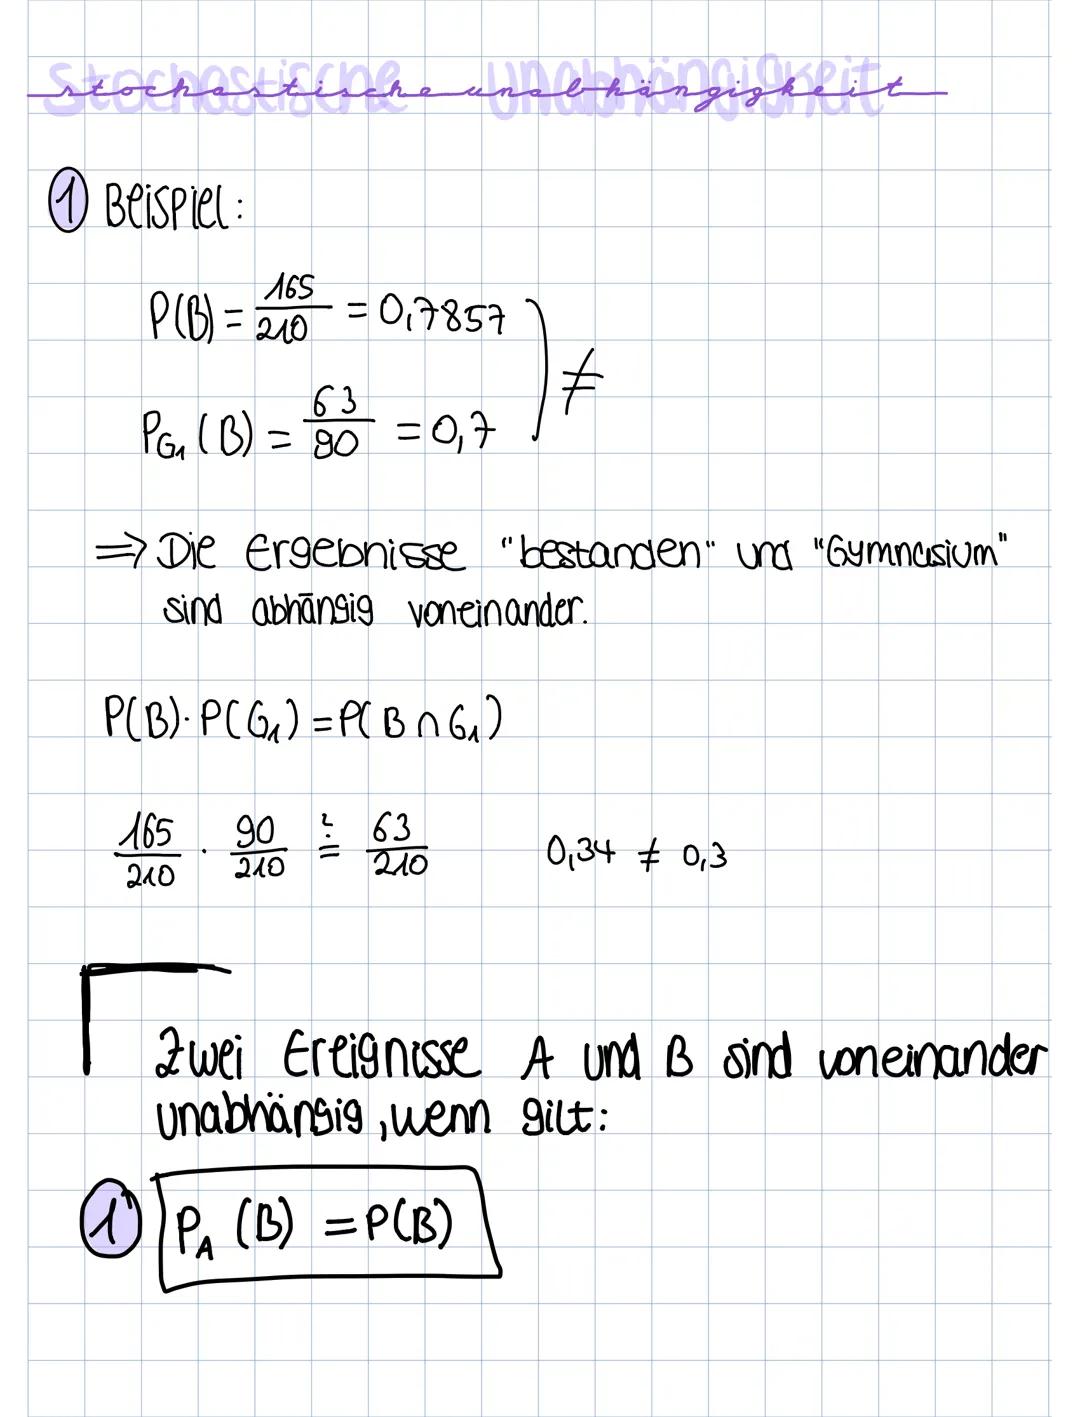 Stochastische Unabhängigkeit
stochastische unabhängigkeit
1 Beispiel:
P(B) = 165/210 = 0,7857
≠
P_G1 (B) = 63/90 = 0,7
⇒ Die Ergebnisse "bestanden" und "Gymnasium"
sind abhängig voneinander.
P(B)·P(G₁) = P(B ∩ G₁)
165/210 · 90/210 ≟ 63/210 0,34 ≠ 0,3
Zwei Ereignisse A und B sind voneinander
unabhängig, wenn gilt:
1 P_A (B) = P(B)